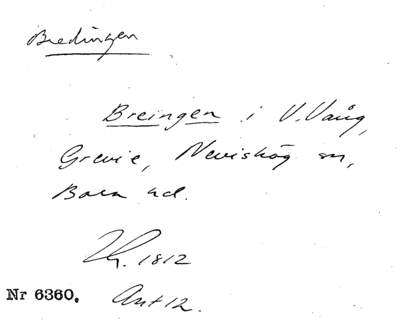 Bredingen
Breingen i V. Vång,
Grevie, Nevishög sn,
Bara hd.
1812
Nr 6360. Ant 12.